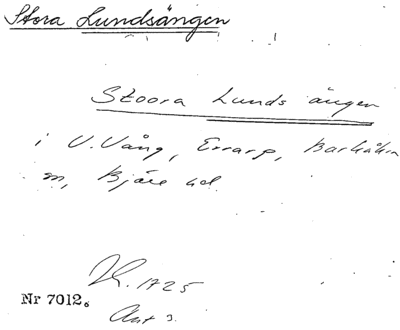 Stora Lundsängen
Stoora Lunds ängen
i V. Vång, Errarp, Barkåkra
sn, Bjäre hd.
1725
Nr 7012.
Akt 3.